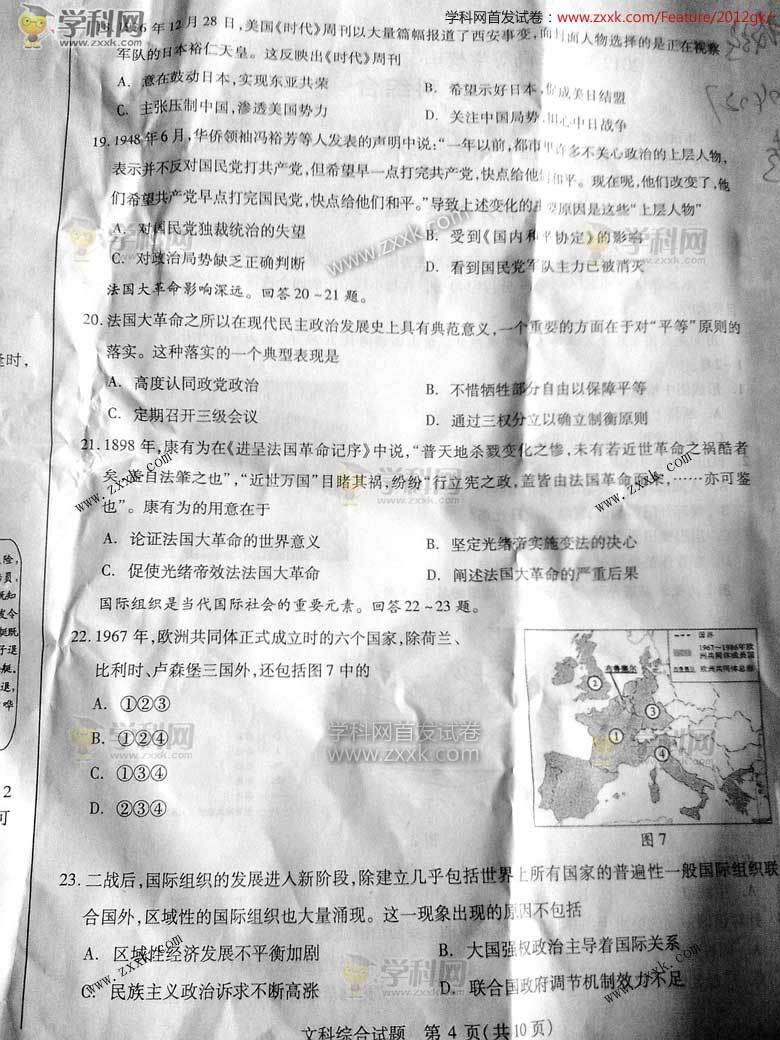 学科网首发试卷：www.zxxk.com/Feature/2012gk/
6年12月28日，美国《时代》周刊以大量篇幅报道了西安事变，而封面人物选择的是正在视察
军队的日本裕仁天皇。这反映出《时代》周刊
A. 意在鼓动日本，实现东亚共荣 B. 希望示好日本，促成美日结盟
C. 主张压制中国，渗透美国势力 D. 关注中国局势，担心中日战争
19. 1948年6月，华侨领袖冯裕芳等人发表的声明中说：“一年以前，都市中许多不关心政治的上层人物，
表示并不反对国民党打共产党，但希望早一点打完共产党，快点给他们和平。现在呢，他们改变了，他
们希望共产党早点打完国民党，快点给他们和平。”导致上述变化的主要原因是这些“上层人物”
A. 对国民党独裁统治的失望 B. 受到《国内和平协定》的影响
C. 对政治局势缺乏正确判断 D. 看到国民党军队主力已被消灭
法国大革命影响深远。回答20~21题。
20. 法国大革命之所以在现代民主政治发展史上具有典范意义，一个重要的方面在于对“平等”原则的
落实。这种落实的一个典型表现是
A. 高度认同政党政治 B. 不惜牺牲部分自由以保障平等
C. 定期召开三级会议 D. 通过三权分立以确立制衡原则
21. 1898年，康有为在《进呈法国革命记序》中说，“普天地杀戮变化之惨，未有若近世革命之祸酷者
矣，盖自法肇之也”，“近世万国”目睹其祸，纷纷“行立宪之政，盖皆由法国革命而来，……亦可鉴
也”。康有为的用意在于
A. 论证法国大革命的世界意义 B. 坚定光绪帝实施变法的决心
C. 促使光绪帝效法法国大革命 D. 阐述法国大革命的严重后果
国际组织是当代国际社会的重要元素。回答22~23题。
22. 1967年，欧洲共同体正式成立时的六个国家，除荷兰、
比利时、卢森堡三国外，还包括图7中的
A. ①②③
B. ①②④
C. ①③④
D. ②③④
国界
1967~1986年欧
洲共同体成员国
布鲁塞尔 欧洲共同体总部
布鲁塞尔
②
③
①
④
图7
23. 二战后，国际组织的发展进入新阶段，除建立几乎包括世界上所有国家的普遍性一般国际组织联
合国外，区域性的国际组织也大量涌现。这一现象出现的原因不包括
A. 区域性经济发展不平衡加剧 B. 大国强权政治主导着国际关系
C. 民族主义政治诉求不断高涨 D. 联合国政府调节机制效力不足
文科综合试题 第4页（共10页）
学科网
www.zxxk.com
学科网首发试卷
www.zxxk.com